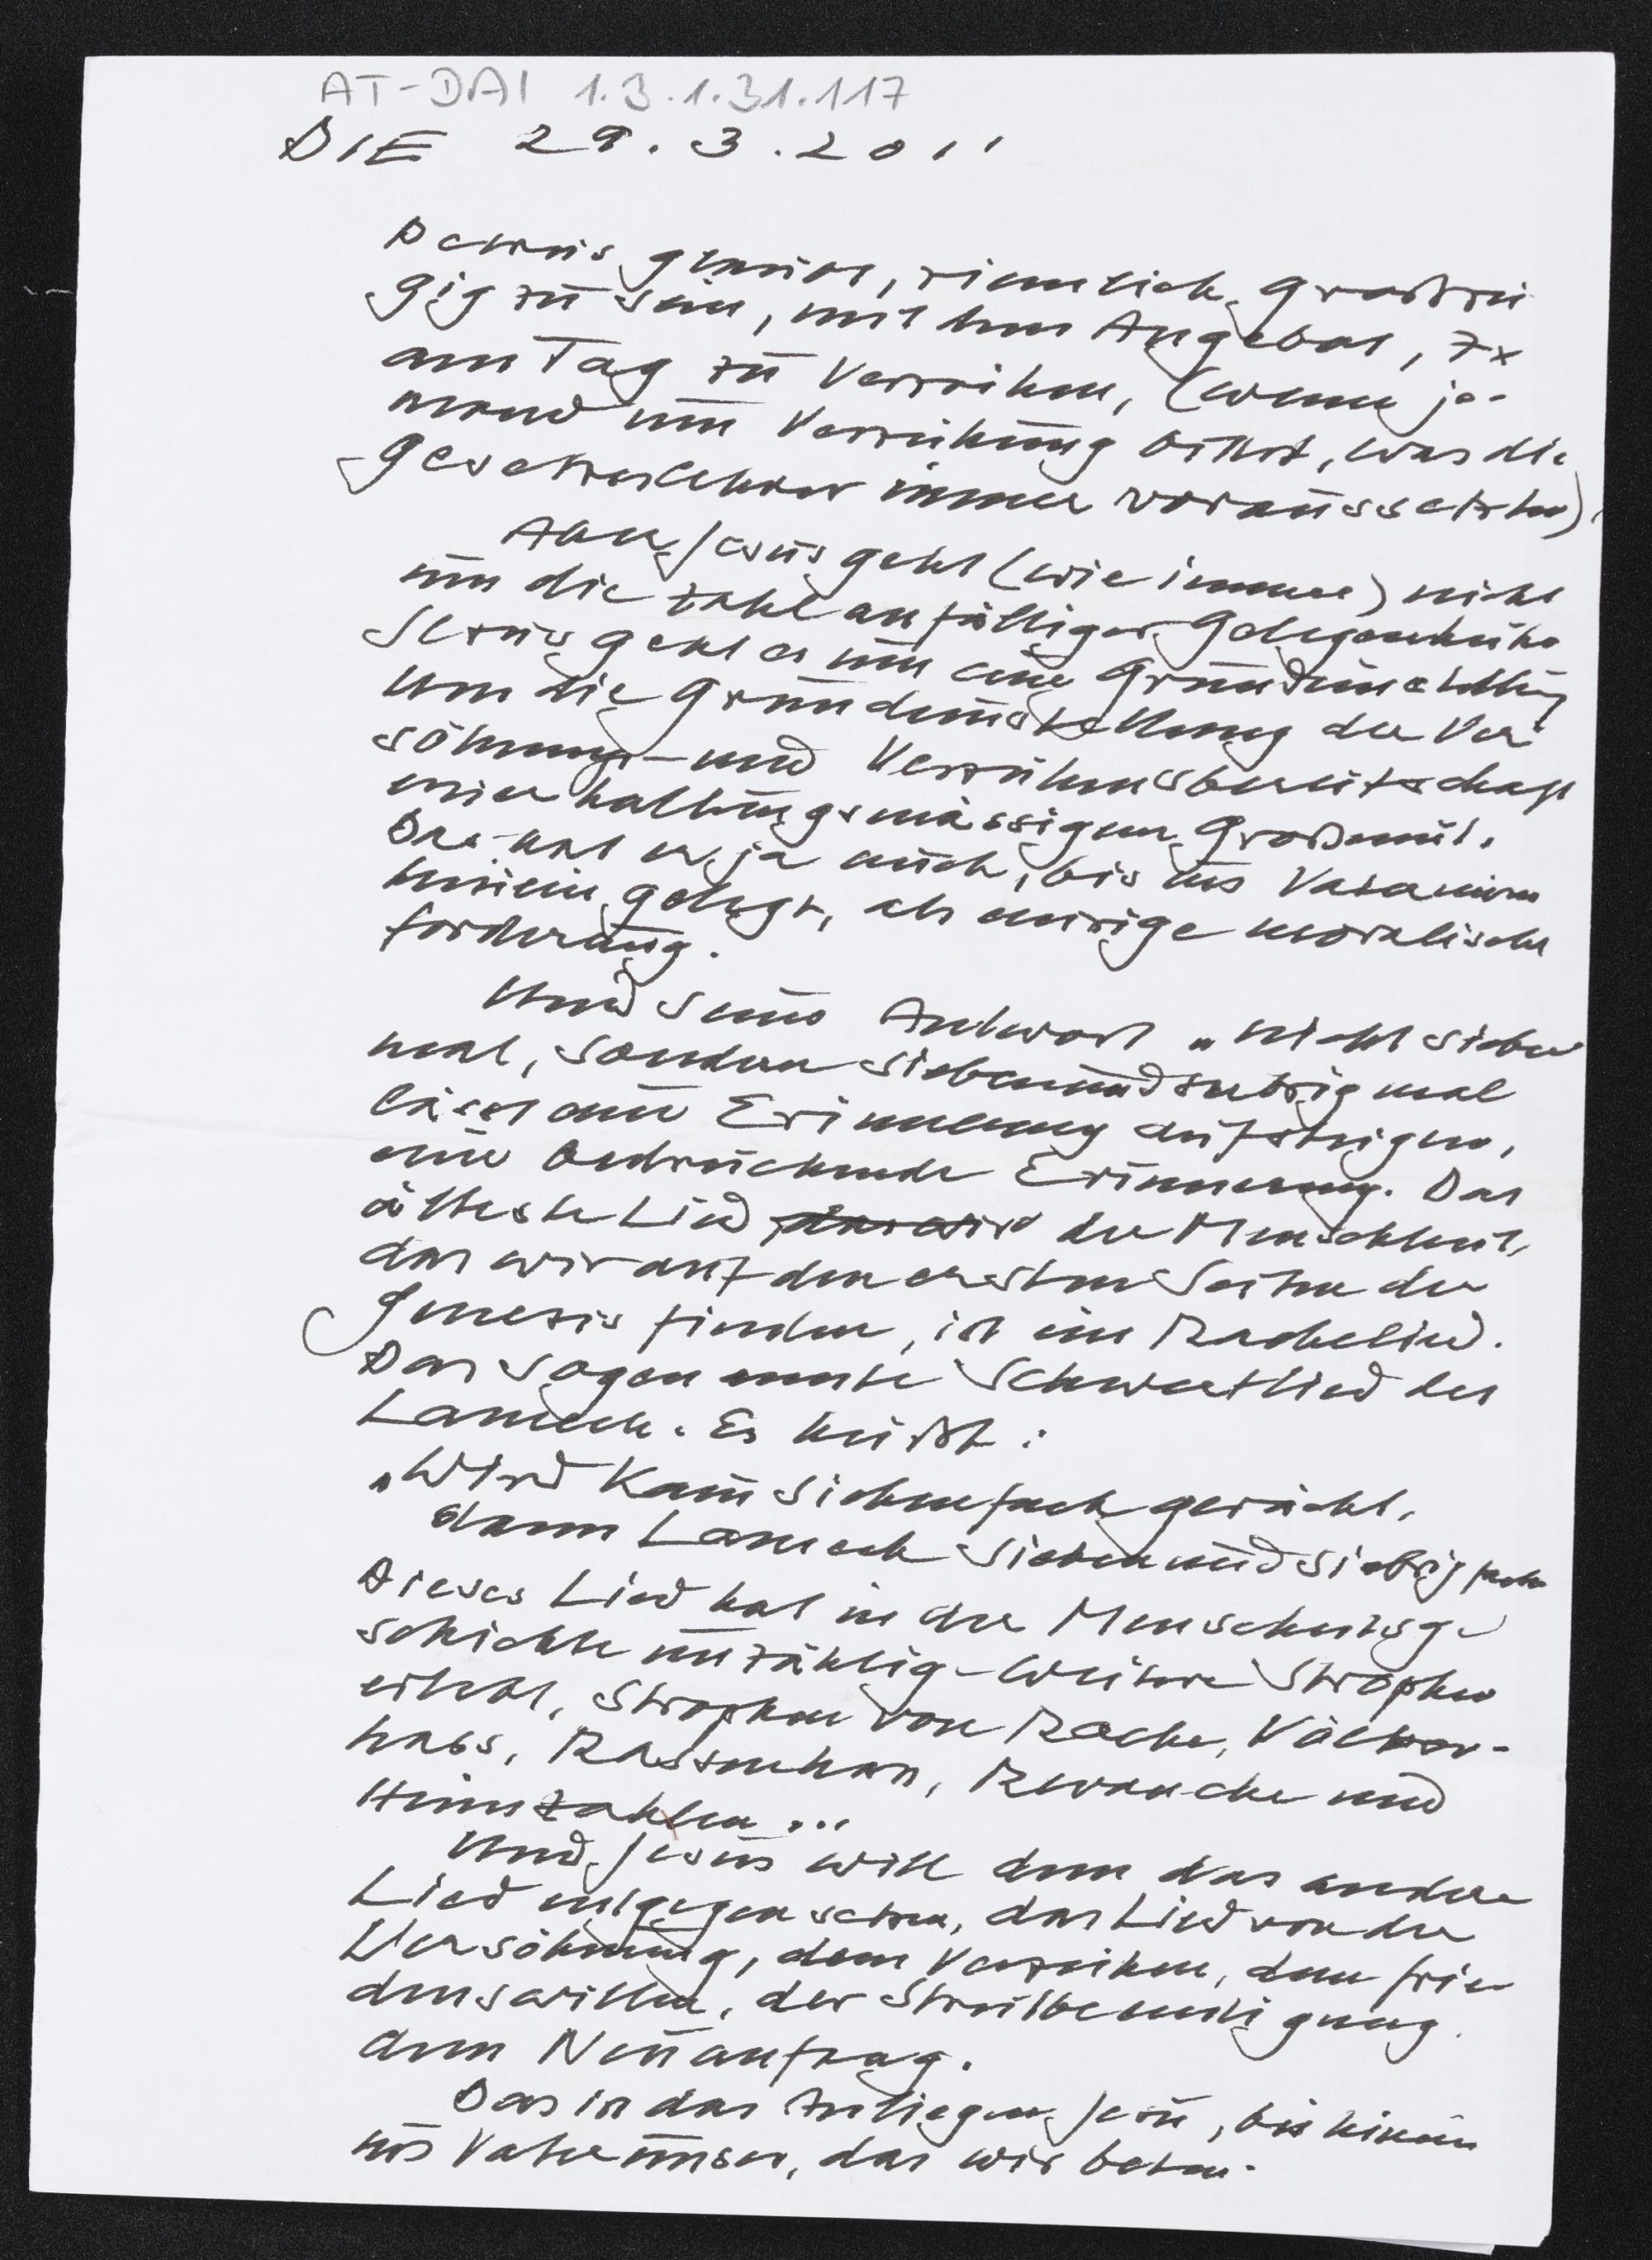 AT-DAI 1.3.1.31.117
DIE 29.3.2011
Petrus glaubt, ziemlich großzü
gig zu sein, mit dem Angebot, 7x
am Tag zu Verzeihen, (wenn je-
mand um Verzeihung bittet, was die
Gesetzeslehrer immer voraussetzten),
Aber Jesus geht (wie immer) nicht
um die Zahl anfälliger Gelegenheiten
Jesus geht es um eine Grundeinstellung
Um die Grundeinstellung der Ver
söhnungs- und Verzeihensbereitschaft
einer haltungsmässigen Großmut.
Das hat er ja auch, bis ins Vaterunser
hinein gelegt, als einzige moralische
Forderung.
Und seine Antwort „nicht sieben
mal, sondern siebenundsiebzig mal
lässt eine Erinnerung aufsteigen,
eine bedrückende Erinnerung. Das
älteste Lied das wir der Menschheit,
das wir auf den ersten Seiten der
Genesis finden, ist ein Rachelied.
Das sogenannte Schwertlied des
Lamech. Es heißt:
„Wird Kain siebenfach gerächt,
dann Lamech siebenundsiebzigfach
Dieses Lied hat in der Menschheitsge
schichte unzählig weitere Strophen
erlebt, Strophen von Rache, Völker-
hass, Rassenhass, Revanche und
Heimzahlen...
Und Jesus will dem das andere
Lied entgegensetzen, das Lied von der
Versöhnung, dem Verzeihen, dem Frie
denswillen, der Streitbeendigung
dem Neuanfang.
Das ist das Anliegen Jesu, bis hinein
ins Vaterunser, das wir beten.